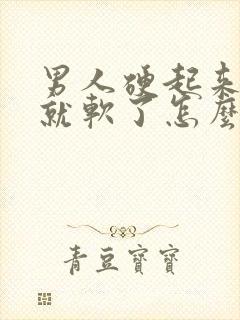 男人硬起来
就軟了怎麼
青豆寶寶